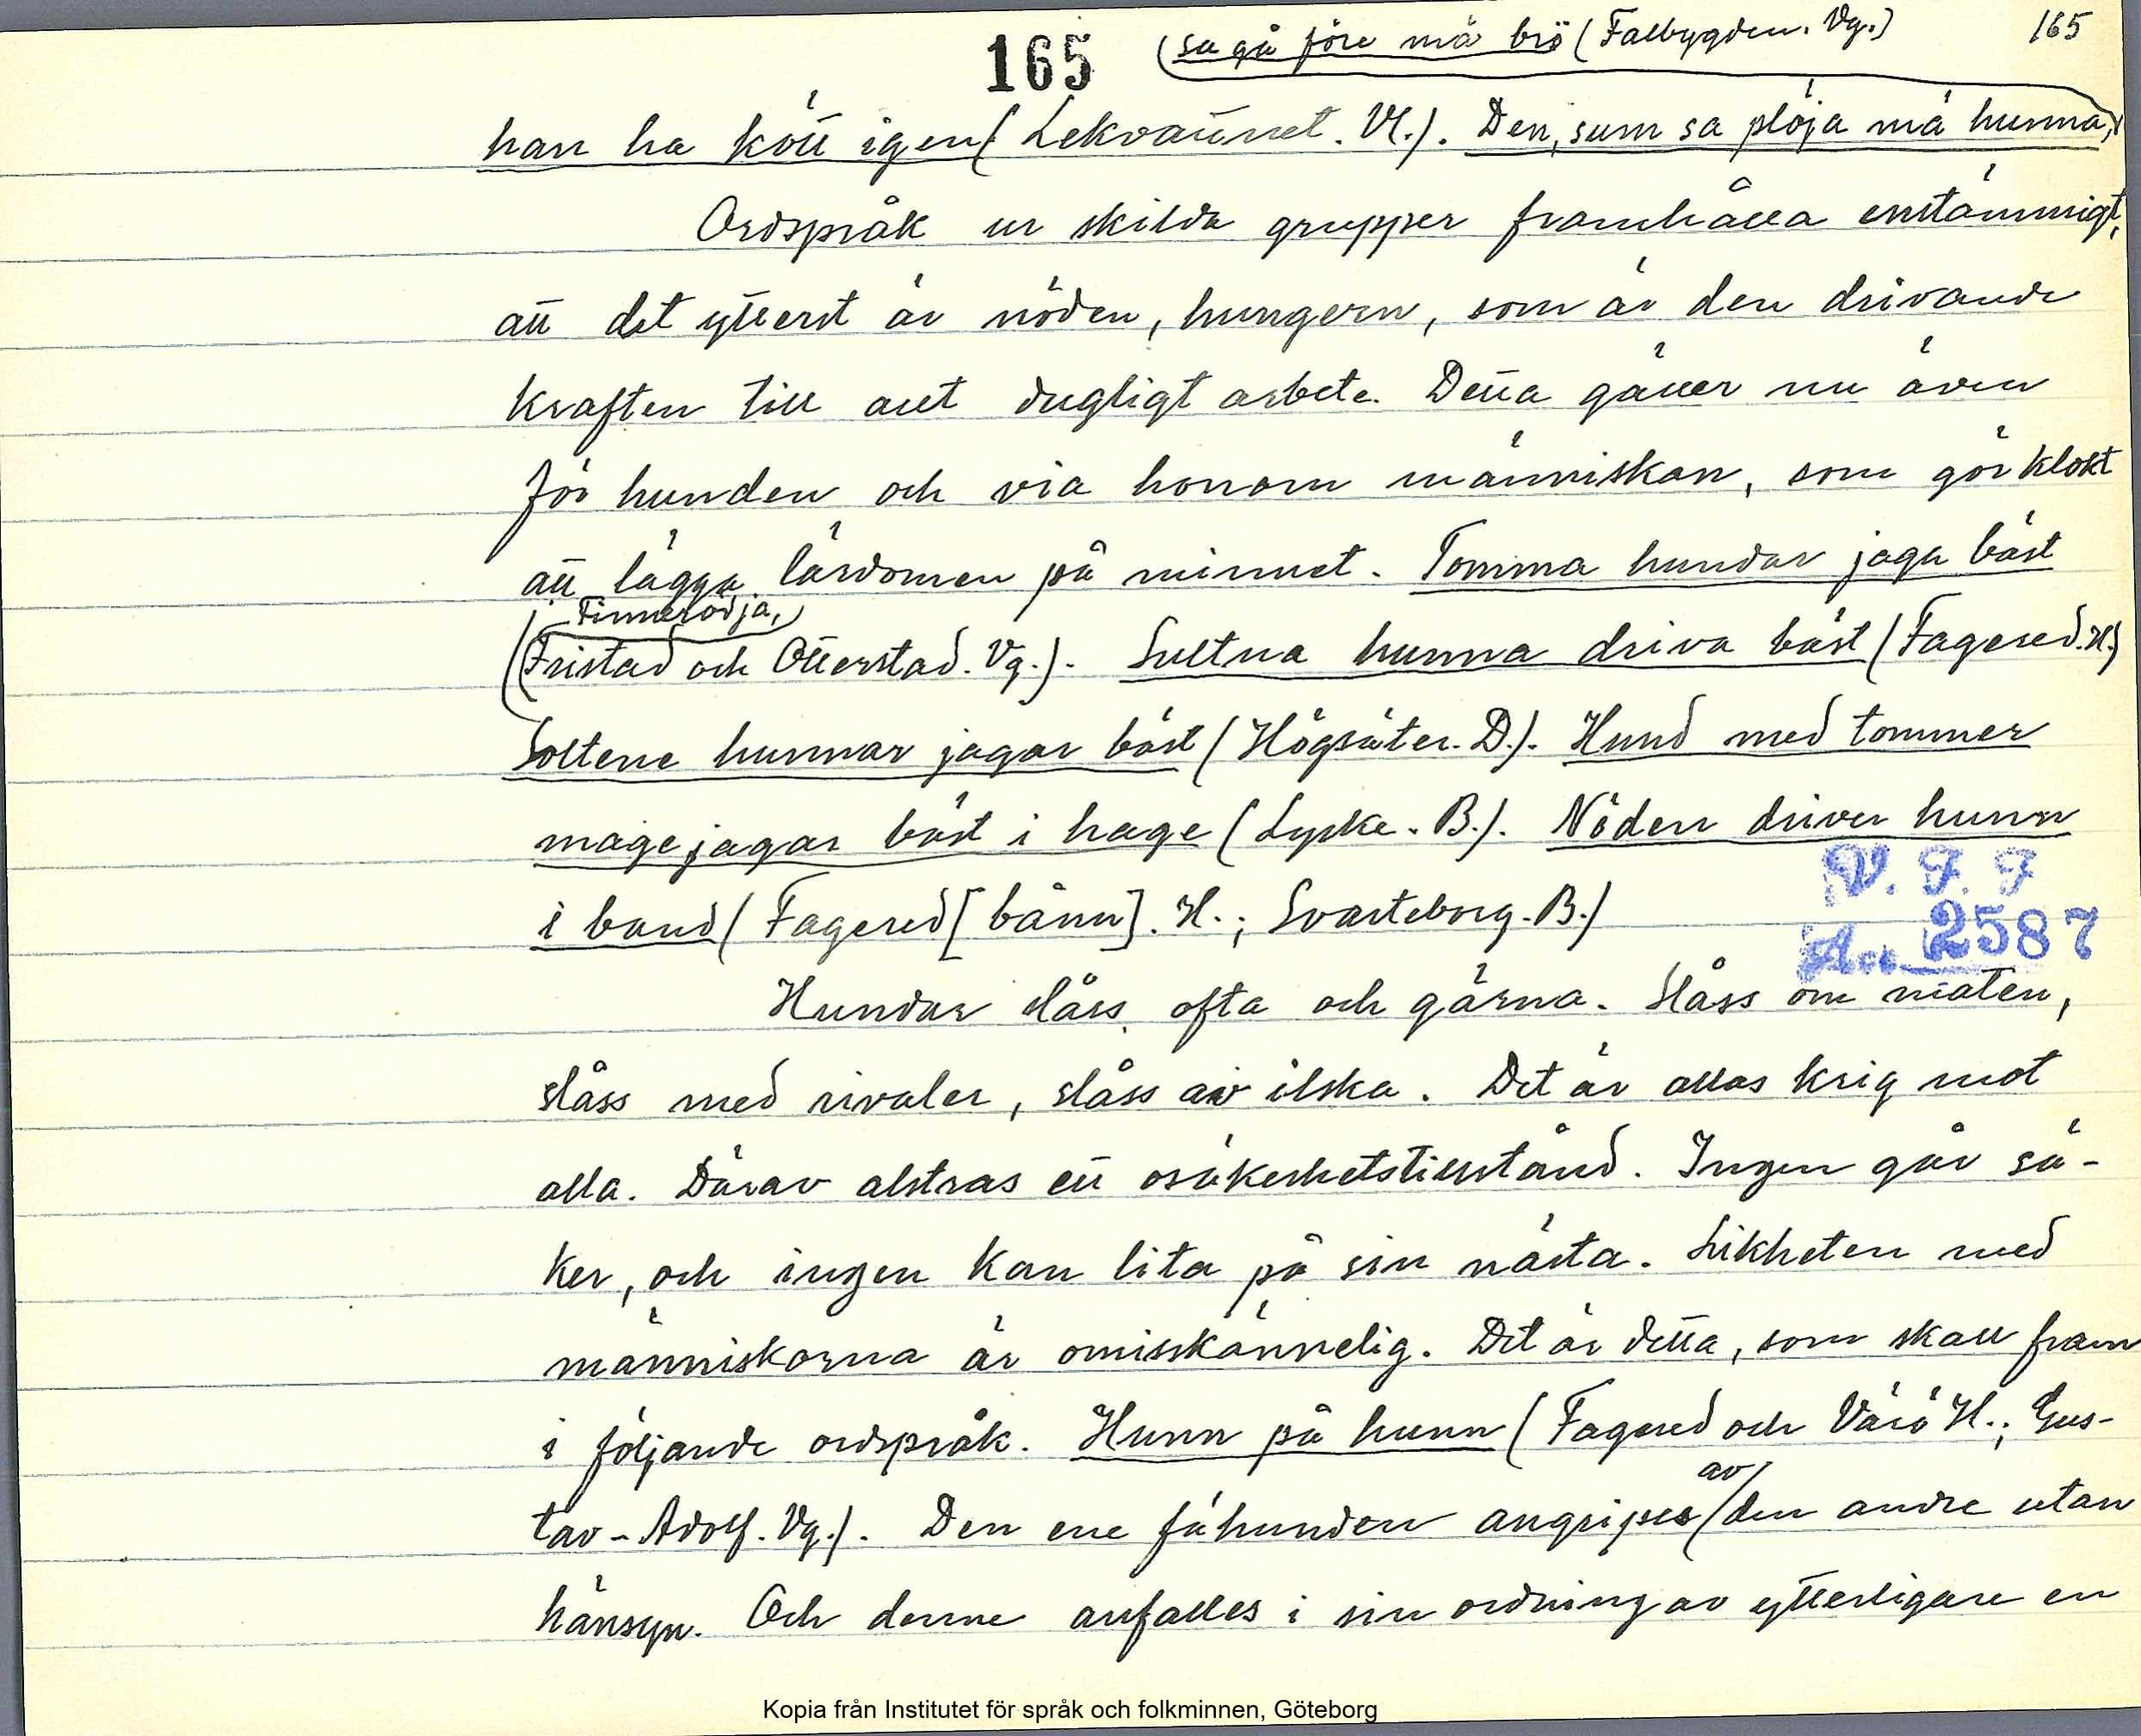 165
sa gå före mä brö (Falbygden. Vg.)
165
han ha kött igen (Lekvattnet. Vl.). Den, sum sa plöja mä hunna,
Ordspråk ur skilda grupper framhålla enstämmigt,
att det ytterst är nöden, hungern, som är den drivande
kraften till allt dugligt arbete. Detta gäller nu även
för hunden och via honom människan, som gör klokt
att lägga lärdomen på minnet. Tomma hundar jaga bäst
Finnerödja,
(Fristad och Otterstad. Vg.). Sultna hunna driva bäst (Fagered. H.)
Soltene hunnar jagar bäst (Högsäter. D.). Hund med tommer
mage jagar bäst i hage (Lyske. B.). Nöden driver hunn
i band (Fagered [bånn]. H.; Svarteborg. B.)
V. F. F
Acc. 2587
Hundar slåss ofta och gärna. Slåss om maten,
slåss med rivaler, slåss av ilska. Det är allas krig mot
alla. Därav alstras ett osäkerhetstillstånd. Ingen går sä-
ker, och ingen kan lita på sin nästa. Likheten med
människorna är omisskännelig. Det är detta, som skall fram
i följande ordspråk. Hunn på hunn (Fagered och Värö H.; Gus-
tav-Adolf. Vg.). Den ene fähunden angripes av den andre utan
hänsyn. Och denne anfalles i sin ordning av ytterligare en
Kopia från Institutet för språk och folkminnen, Göteborg